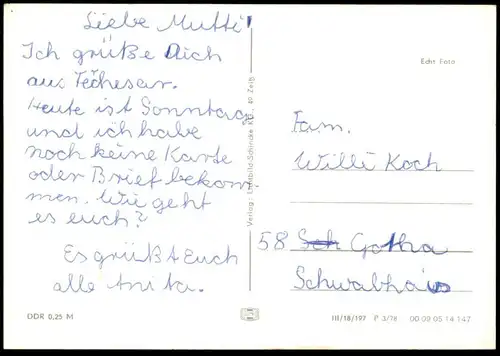 Liebe Mutti!
Ich grüße Dich
aus Techesar.
Heute ist Sonntag
und ich habe
noch keine Karte
oder Brief bekom
men. Wie geht
es euch?
Es grüßt Euch
alle Anita.
DDR 0,25 M
Verlag: Lichtbild-Schincke KG, 49 Zeitz
Echt Foto
Fam.
Willi Koch
58 Sch Gotha
Schwabhä
III/18/197 P 3/78 00 09 05 14 147